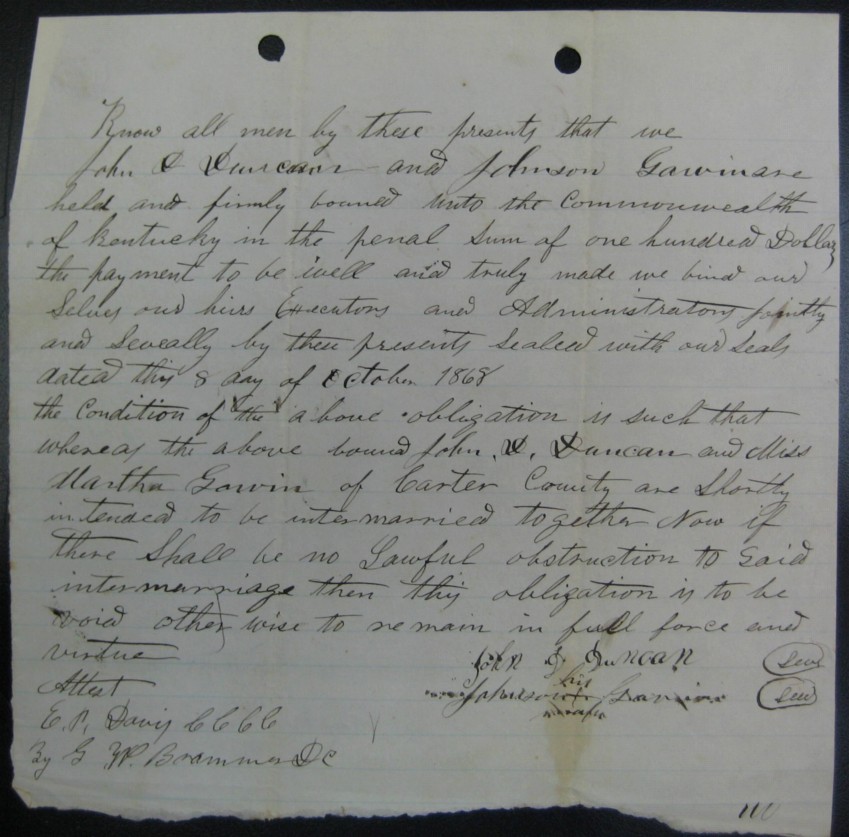 Know all men by these presents that we
John D Duncan and Johnson Gowin are
held and firmly bound unto the Commonwealth
of Kentucky in the penal sum of one hundred Dollars
the payment to be well and truly made we bind our
Selves our hirs Executors and Administrators jointly
and Seveally by these presents Sealed with our Seals
dated this 8 day of October 1868
the Condition of the above obligation is such that
whereas the above bound John. D. Duncan and Miss
Martha Gowin of Carter County are Shortly
intended to be intermarried together Now if
there Shall be no Lawful obstruction to Said
intermarriage then this obligation is to be
void other wise to remain in full force and
virtue
John D Duncan Seal
Attest
his
Johnson + Gowin Seal
mark
E. P. Davis CCCC
By G W. Brammer DC